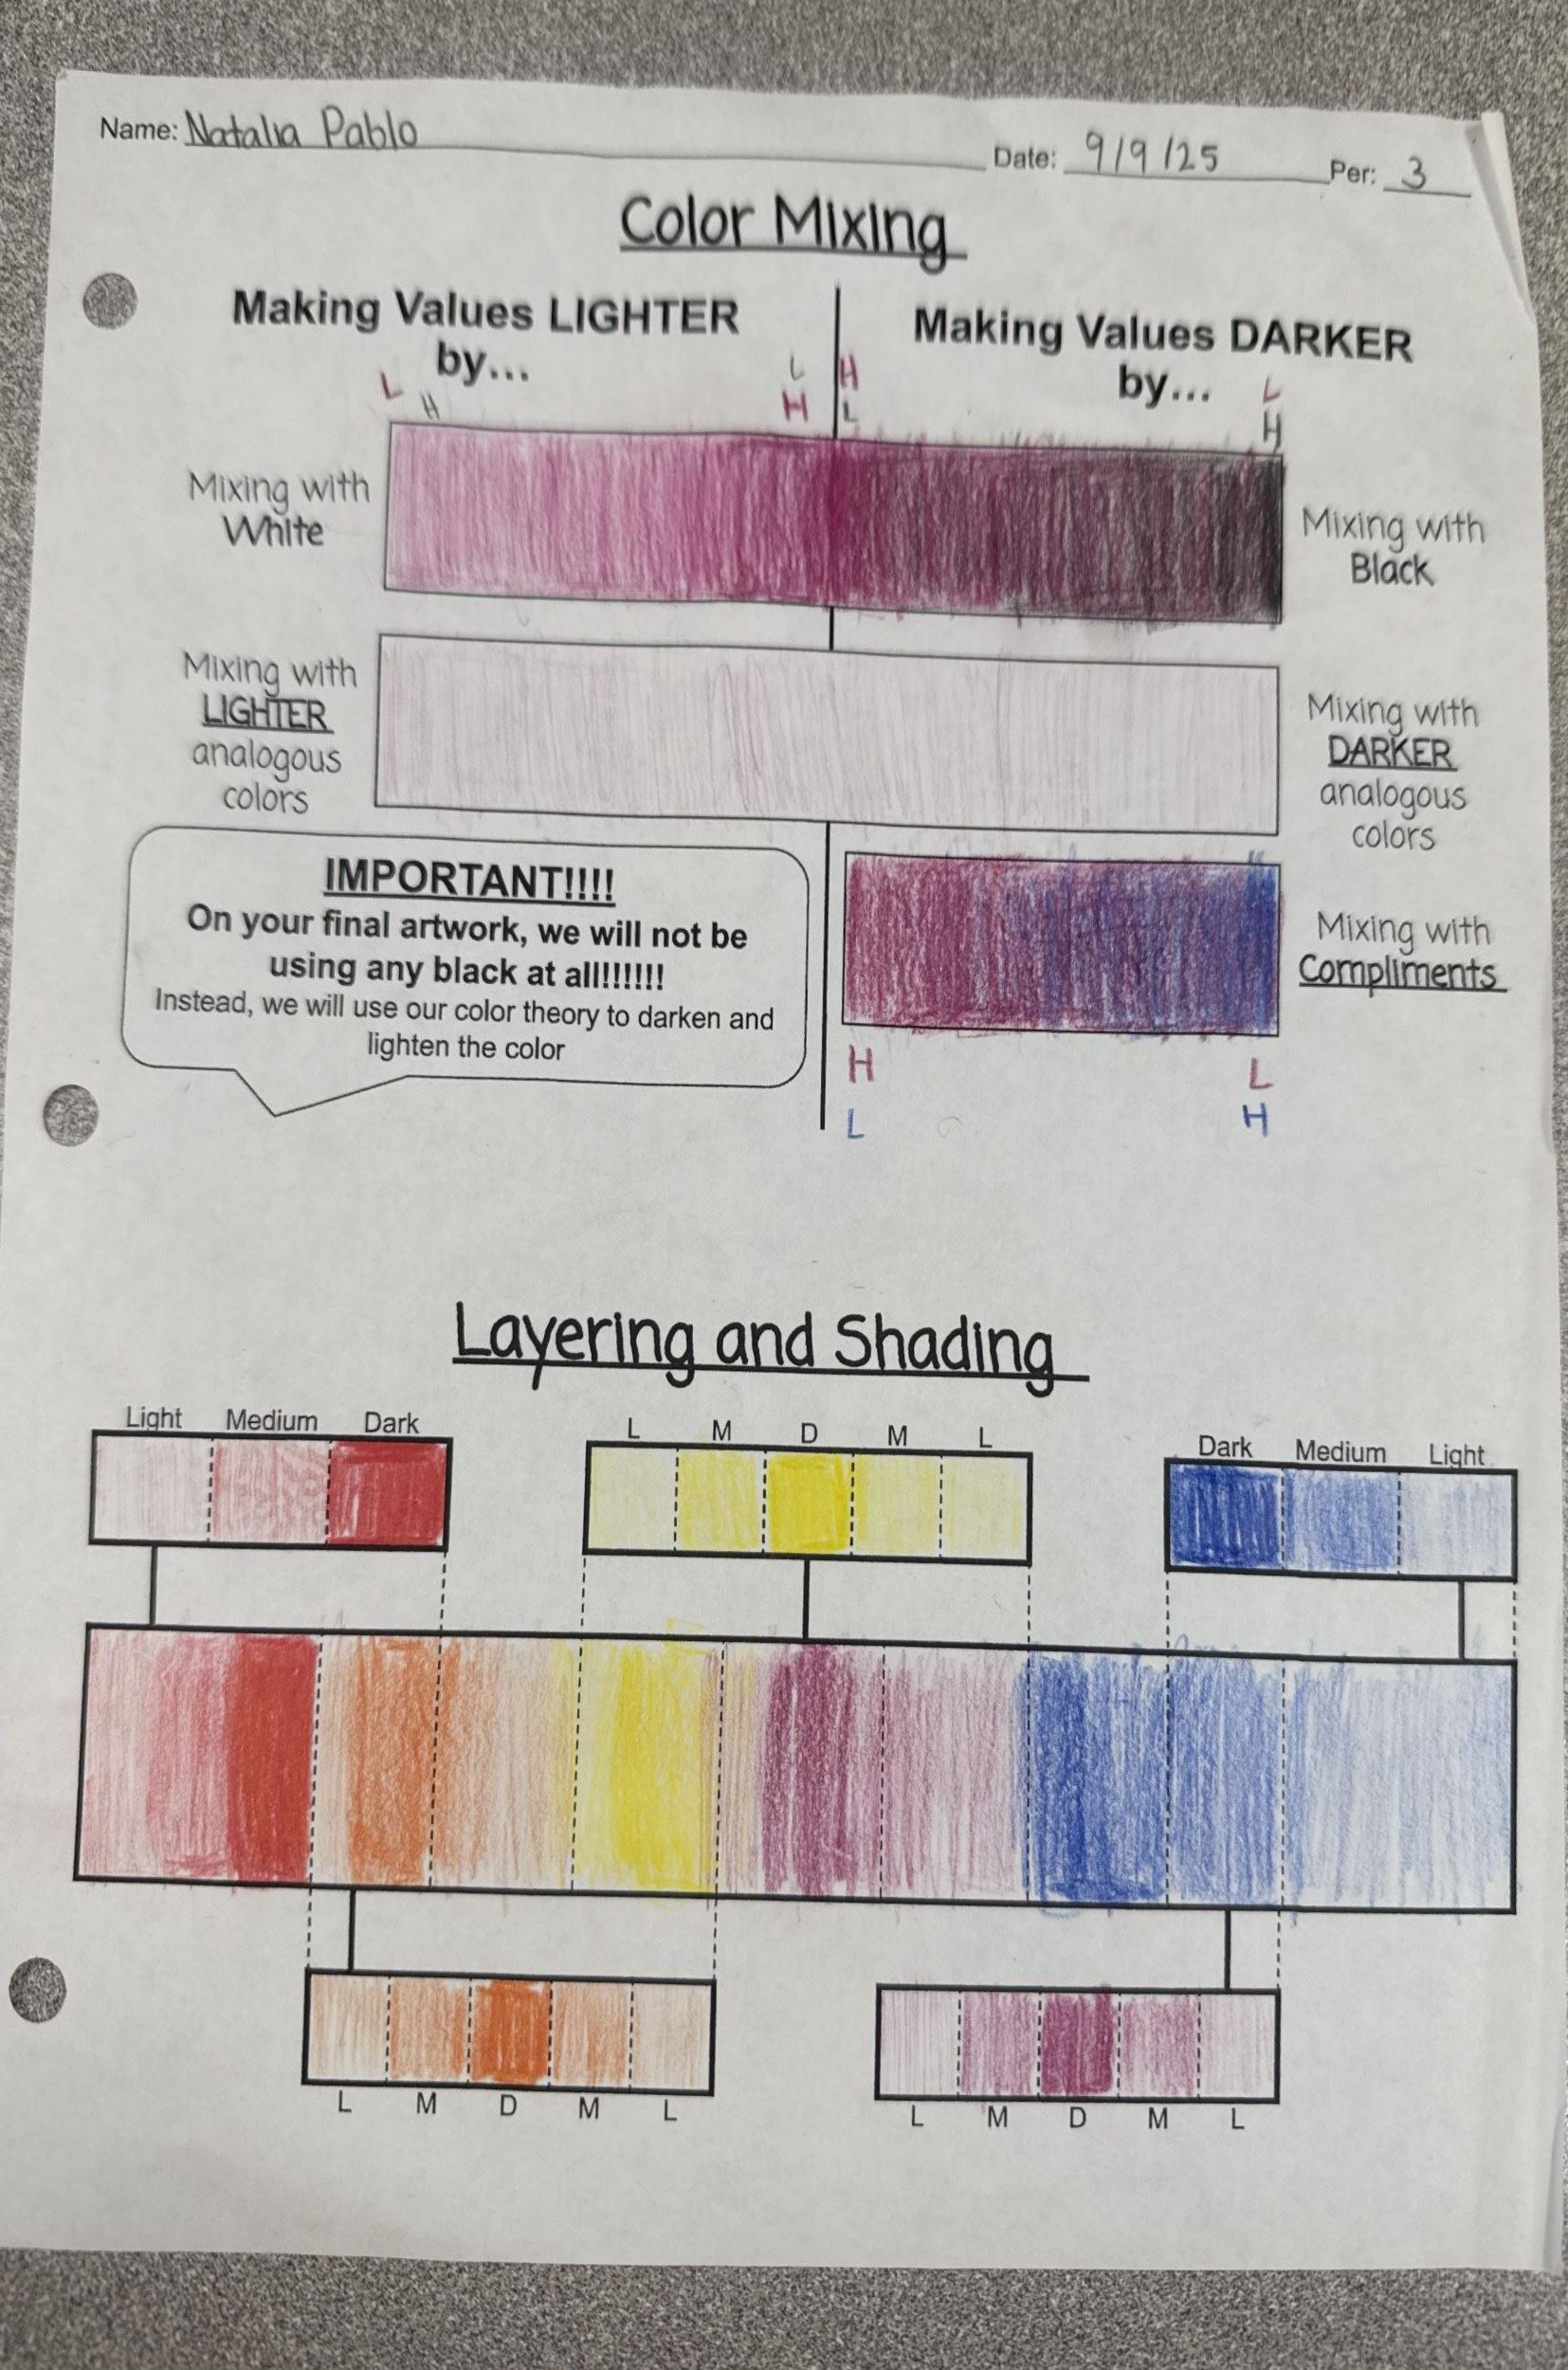 Name: Natalia Pablo Date: 9/9/25 Per: 3
Color Mixing
Making Values LIGHTER
by...
Making Values DARKER
by...
L H L H
H L L H
Mixing with
White
Mixing with
Black
Mixing with
LIGHTER
analogous
colors
Mixing with
DARKER
analogous
colors
IMPORTANT!!!!
On your final artwork, we will not be
using any black at all!!!!!!
Instead, we will use our color theory to darken and
lighten the color
Mixing with
Compliments
H L
L H
Layering and Shading
Light Medium Dark
L M D M L
Dark Medium Light
L M D M L
L M D M L